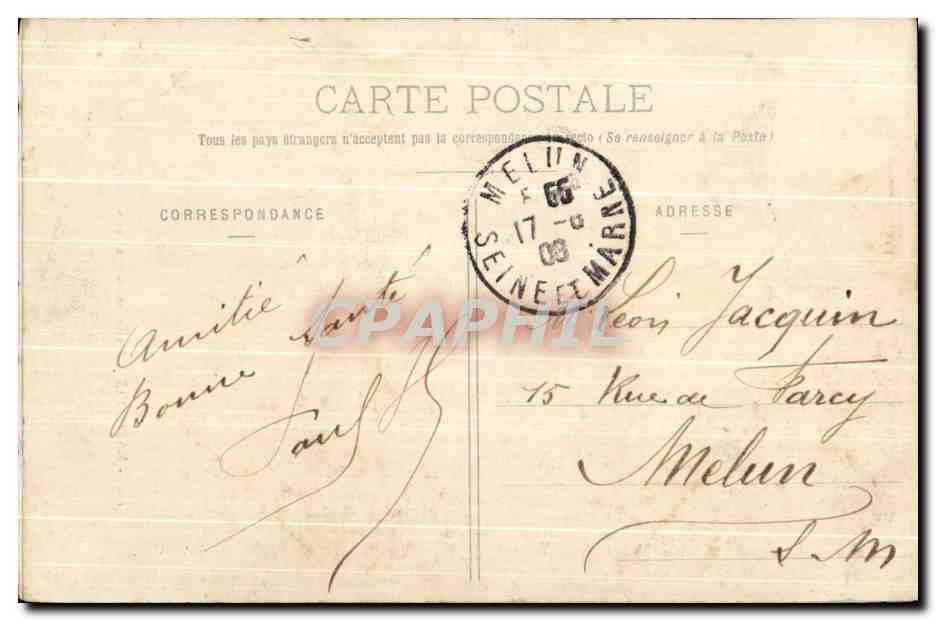 CARTE POSTALE
Tous les pays étrangers n'acceptent pas la correspondance au recto (Se renseigner à la Poste)
CORRESPONDANCE
ADRESSE
MELUN
55
17 -6
08
SEINE ET MARNE
CPAPHIL
Amitié
Bonne Santé
Paul
Léon Jacquin
15 Rue de Farcy
Melun
S. M